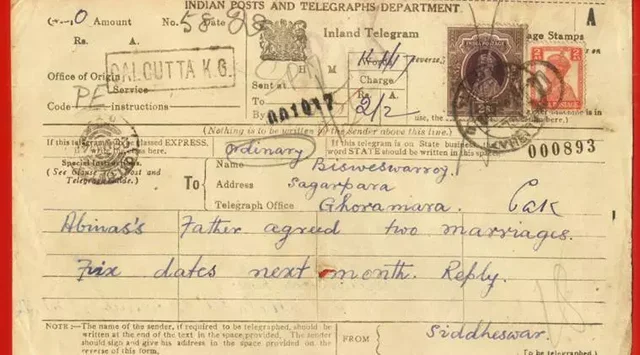 INDIAN POSTS AND TELEGRAPHS DEPARTMENT.
Amount No. 58 Date
A
Rs. A.
Inland Telegram
Stamps
Office of Origin
CALCUTTA K.G.
H M
Words
Sent at
Charge
Service
To
Rs. A.
PE
Code instructions
By
2/2
001017
(Nothing is to be written by the sender above this line.)
000893
If this telegram is to be classed EXPRESS.
Ordinary
If this telegram is on State business the word STATE should be written in this space
Special Instructions.
(See Post and Telegraph Guide.)
To
Name Bisweswarroy
Address Sagarpara
Telegraph Office Ghoramara. Cak
Abinas's Father agreed two marriages.
Fix dates next month. Reply.
NOTE:—The name of the sender, if required to be telegraphed, should be written at the end of the text in the space provided. The sender should sign and give his address in the space provided on the reverse of this form.
FROM Siddheswar.
(to be telegraphed)